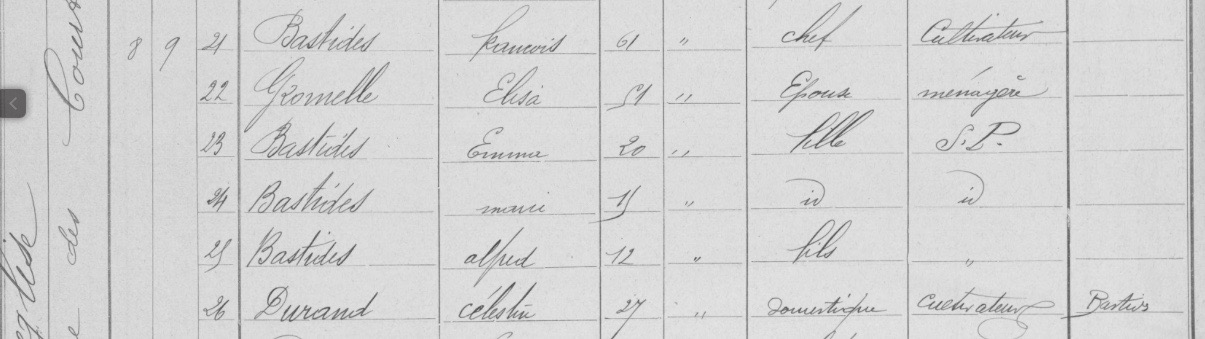 8 9 21 Bastides francois 61 " chef Cultivateur
22 Gromelle Elisa 51 " Epouse ménagère
23 Bastides Emma 20 " fille S.P.
24 Bastides marie 15 " id id
25 Bastides alfred 12 " fils "
26 Durand célestin 27 " domestique cultivateur
des